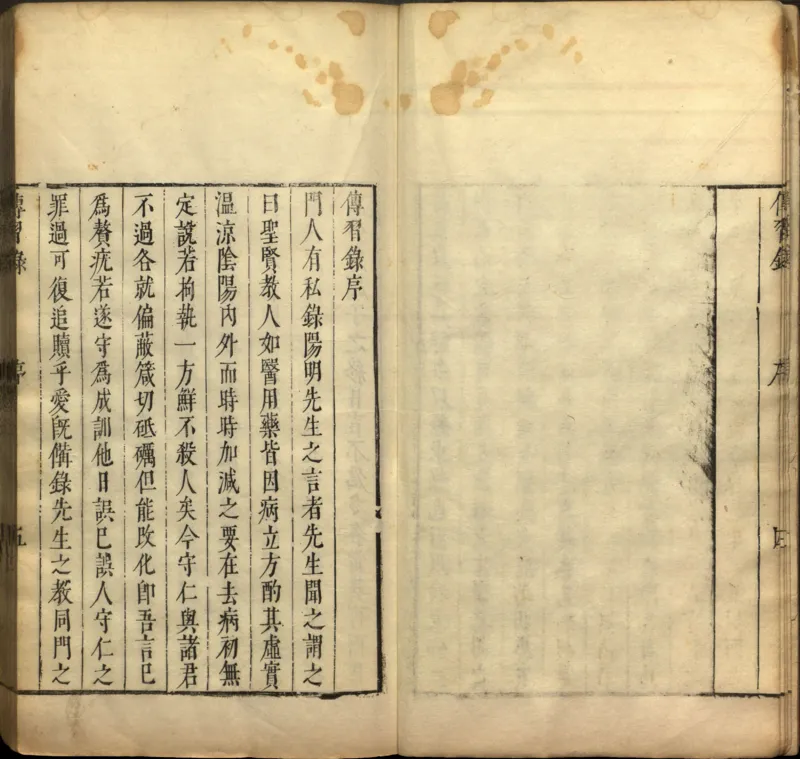 傳習錄
序
傳習錄序
門人有私錄陽明先生之言者先生聞之謂之
曰聖賢教人如醫用藥皆因病立方酌其虛實
溫涼陰陽內外而時時加減之要在去病初無
定說若拘執一方鮮不殺人矣今守仁與諸君
不過各就偏蔽箴切砥礪但能改化卽吾言已
爲贅疣若遂守爲成訓他日誤已誤人守仁之
罪過可復追贖乎愛旣僃錄先生之教同門之
傳習錄
序
五